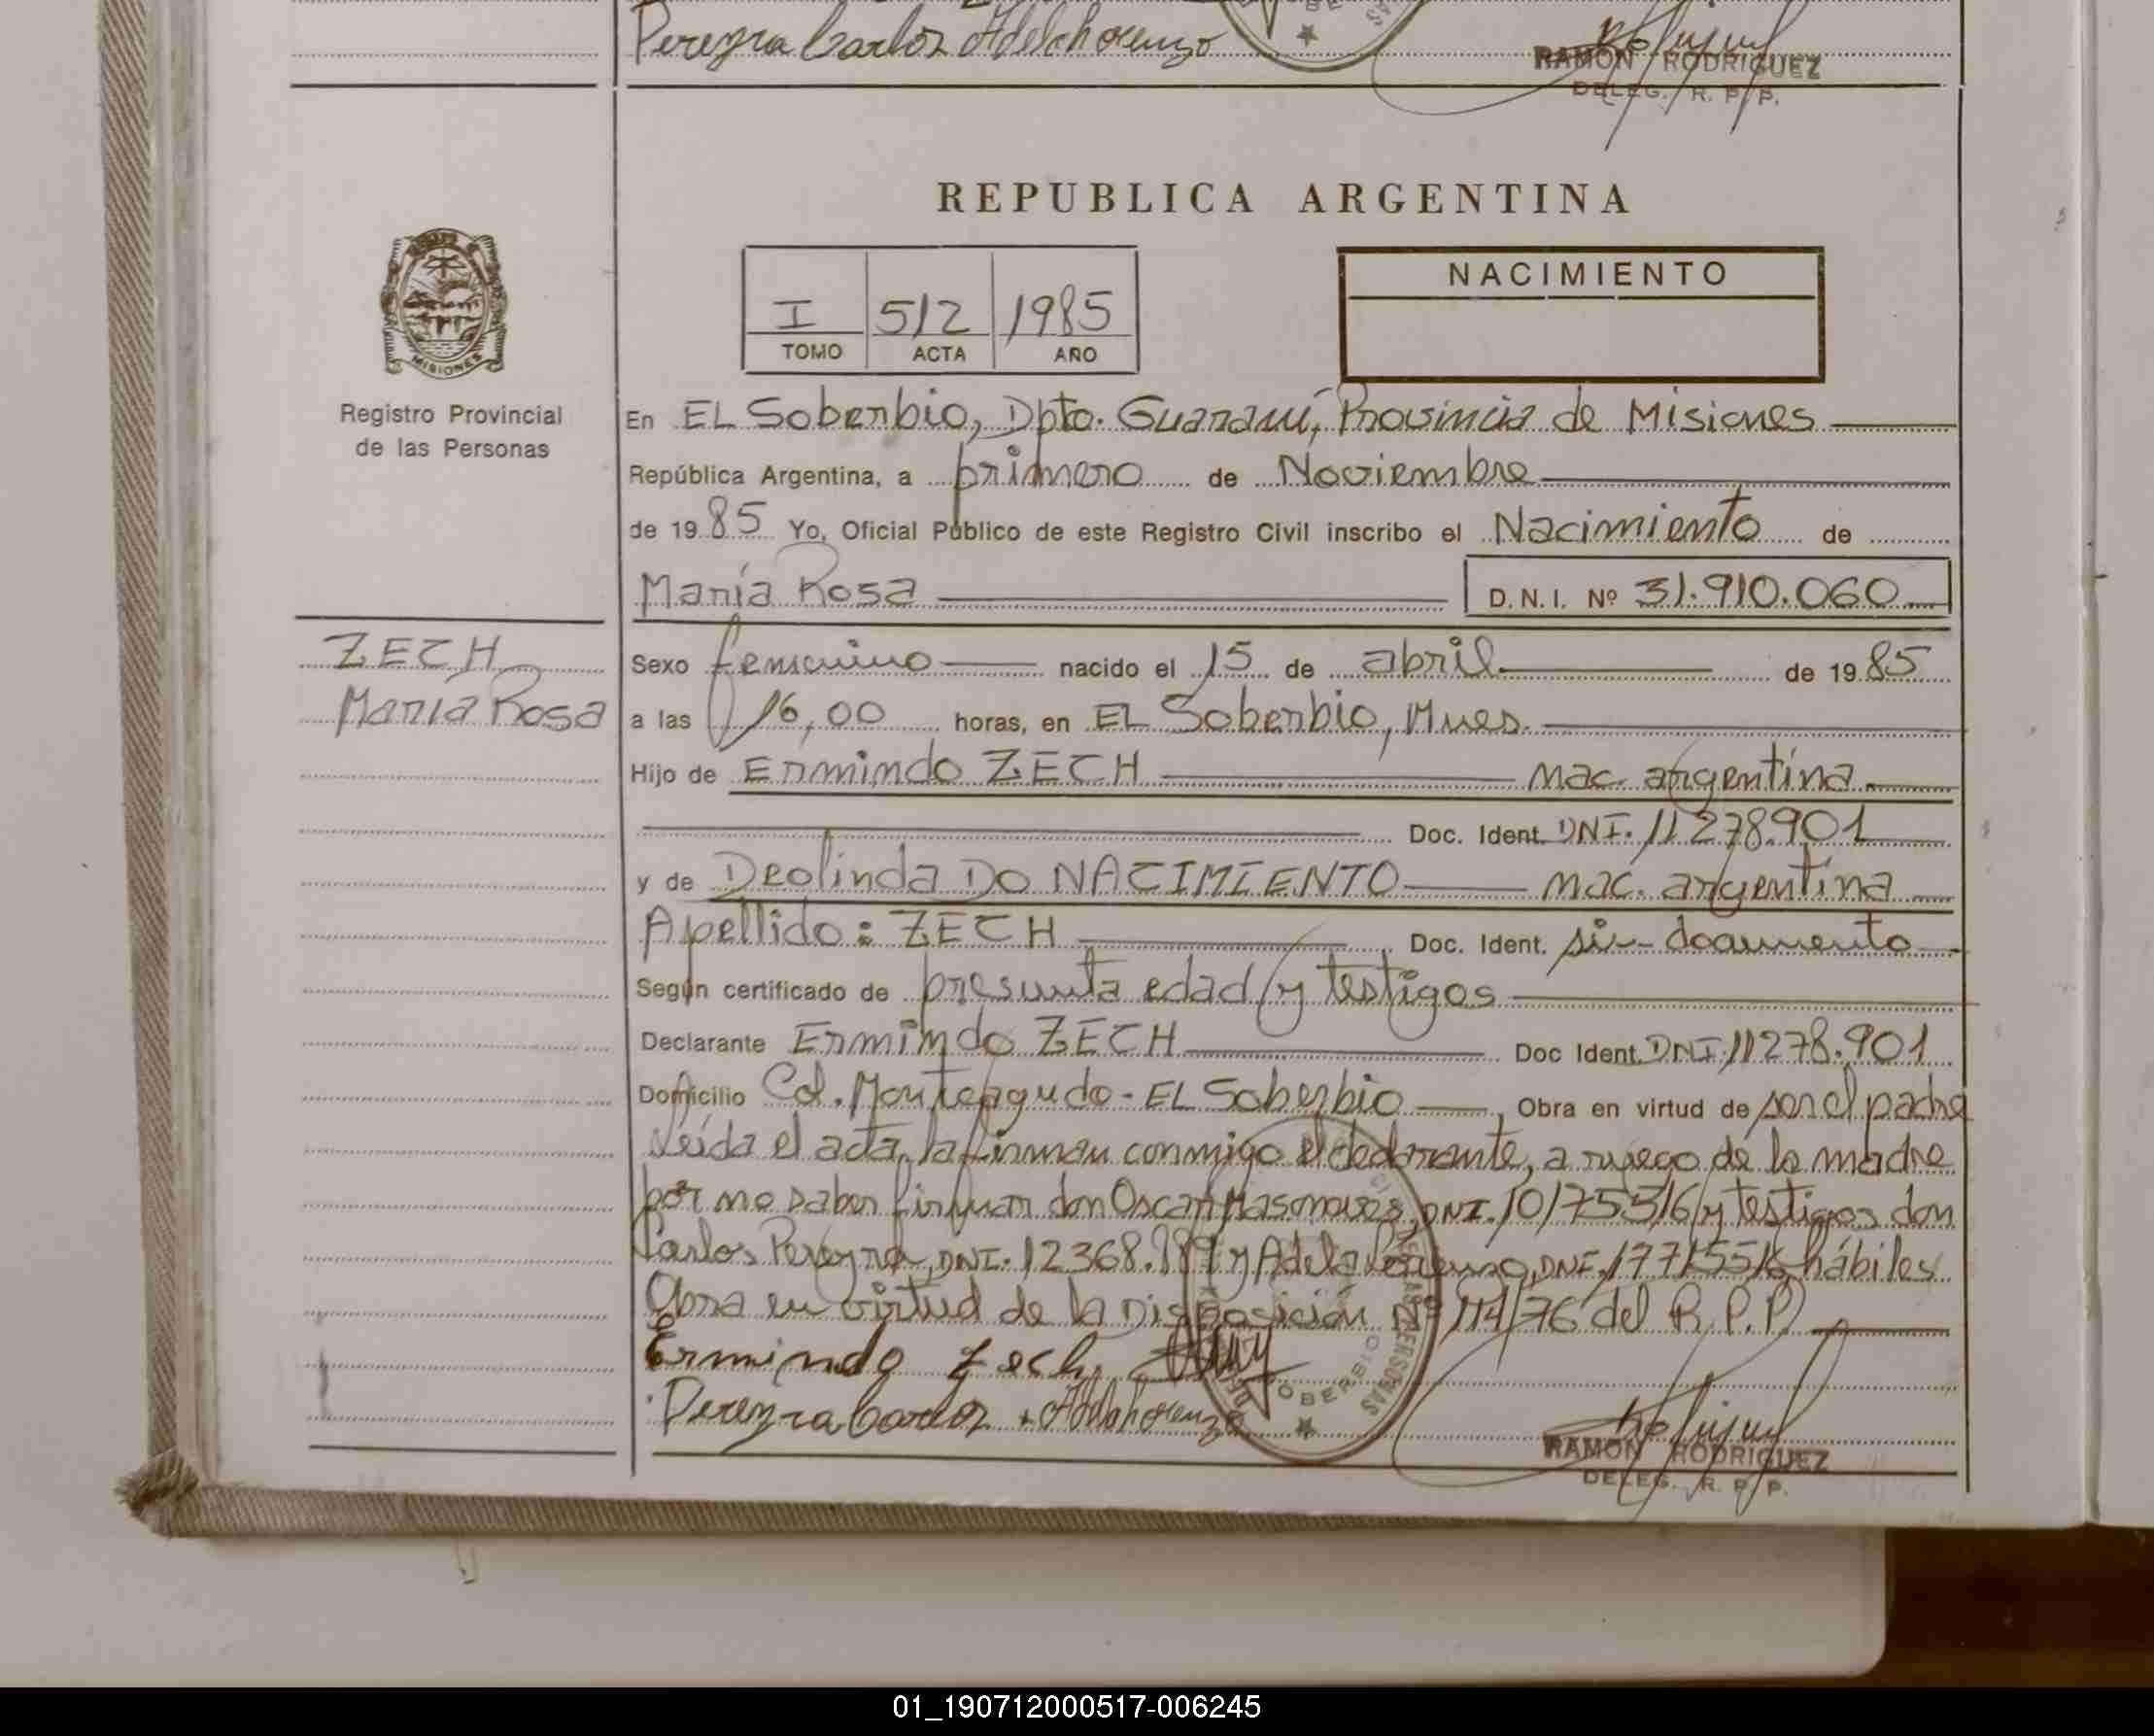 Pereyra Carlos Adela Lorenzo
RAMON RODRIGUEZ
DELEG. R. P. P.
REPUBLICA ARGENTINA
I 512 1985
TOMO ACTA AÑO
NACIMIENTO
MISIONES
Registro Provincial
de las Personas
En EL Soberbio, Dpto. Guaraní, Provincia de Misiones
República Argentina, a primero de Noviembre
de 1985 Yo, Oficial Público de este Registro Civil inscribo el Nacimiento de
María Rosa D.N.I. Nº 31.910.060
ZECH
María Rosa
Sexo femenino nacido el 15 de abril de 1985
a las 16,00 horas, en EL Soberbio, Mnes.
Hijo de Ermindo ZECH nac. argentina
Doc. Ident. DNI. 11278.901
y de Deolinda DO NACIMIENTO nac. argentina
Apellido: ZECH Doc. Ident. sin documento
Según certificado de presunta edad y testigos
Declarante Ermindo ZECH Doc Ident. DNI 11278.901
Domicilio Col. Monteagudo - EL Soberbio, Obra en virtud de ser el padre
Leída el acta, la firman conmigo el declarante, a ruego de la madre
por no saber firmar don Oscar DNI. 10175516 y testigos don
Carlos Pereyra, DNI. 12368. y Adela Lorenzo, DNI. 17715516 hábiles
Obra en virtud de la Disposición Nº 114/76 del R.P.P.
Ermindo Zech
Pereyra Carlos Adela Lorenzo
SOBERBIO
PERSONAS
RAMON RODRIGUEZ
DELEG. R. P. P.
01_190712000517-006245